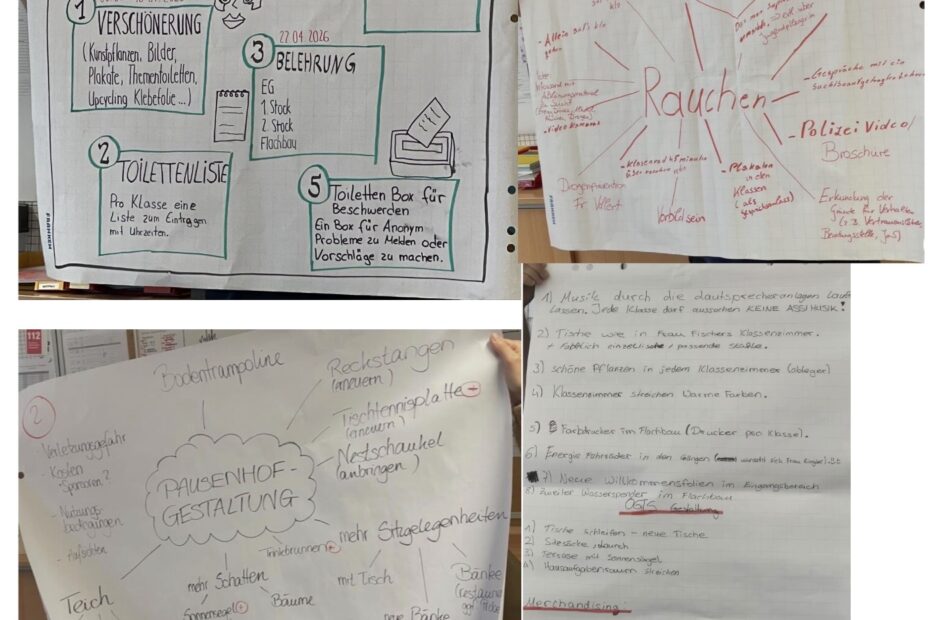 1
VERSCHÖNERUNG
(Kunstpflanzen, Bilder,
Plakate, Thementoiletten,
Upcycling Klebefolie...)
22.04.2026
3
BELEHRUNG
EG
1. Stock
2. Stock
Flachbau
2
TOILETTENLISTE
Pro Klasse eine
Liste zum Eintragen
mit Uhrzeiten.
5
Toiletten Box für
Beschwerden
Ein Box für Anonym
Probleme zu Melden oder
Vorschläge zu machen.
FRANKEN
Rauchen
- Allein aufs Klo
gehen
- Video Kamera
Drogenprävention
Fr. Vollert
Vorbild sein
- Plakate
in den
Klassen
(als
- Gespräche mit
- Polizei Video/
Broschüre
Erkundung der
Gründe für Verhalten
(z.B. Vertrauenslehrer,
Beratungsstelle, JaS)
FRANKEN
2
Bodentrampoline
Reckstangen
(erneuern)
Tischtennisplatte
(erneuern)
Nestschaukel
(anbringen)
PAUSENHOF-
GESTALTUNG
- Verletzungsgefahr
- Kosten
Sponsoren?
- Nutzungs-
bedingungen
- Aufsichten
Trinkbrunnen
mehr Sitzgelegenheiten
mit Tisch
neue Bänke
Bänke
mehr Schatten
Sonnensegel
Bäume
Teich
112
1) Musik durch die Lautsprecheranlagen
lassen. Jede Klasse darf aussuchen KEINE ASSI MUSIK!
2) Tische wie in Frau Fischers Klassenzimmer.
+ farblich einzeltische + passende Stühle.
3) schöne Pflanzen in jedem Klassenzimmer (ableger)
4) Klassenzimmer streichen Warme Farben.
5) Farbdrucker im Flachbau (Drucker pro Klasse).
6) Energie Fahrräder in den Gängen
7) Neue Willkommensfolien im Eingangsbereich
8) zweiter Wasserspender im Flachbau
OGTS Gestaltung
1) Tische schleifen - neue Tische
2) Sitzsäcke,
3) Terasse mit Sonnensegel
4) Hausaufgabenraum streichen
Merchandising